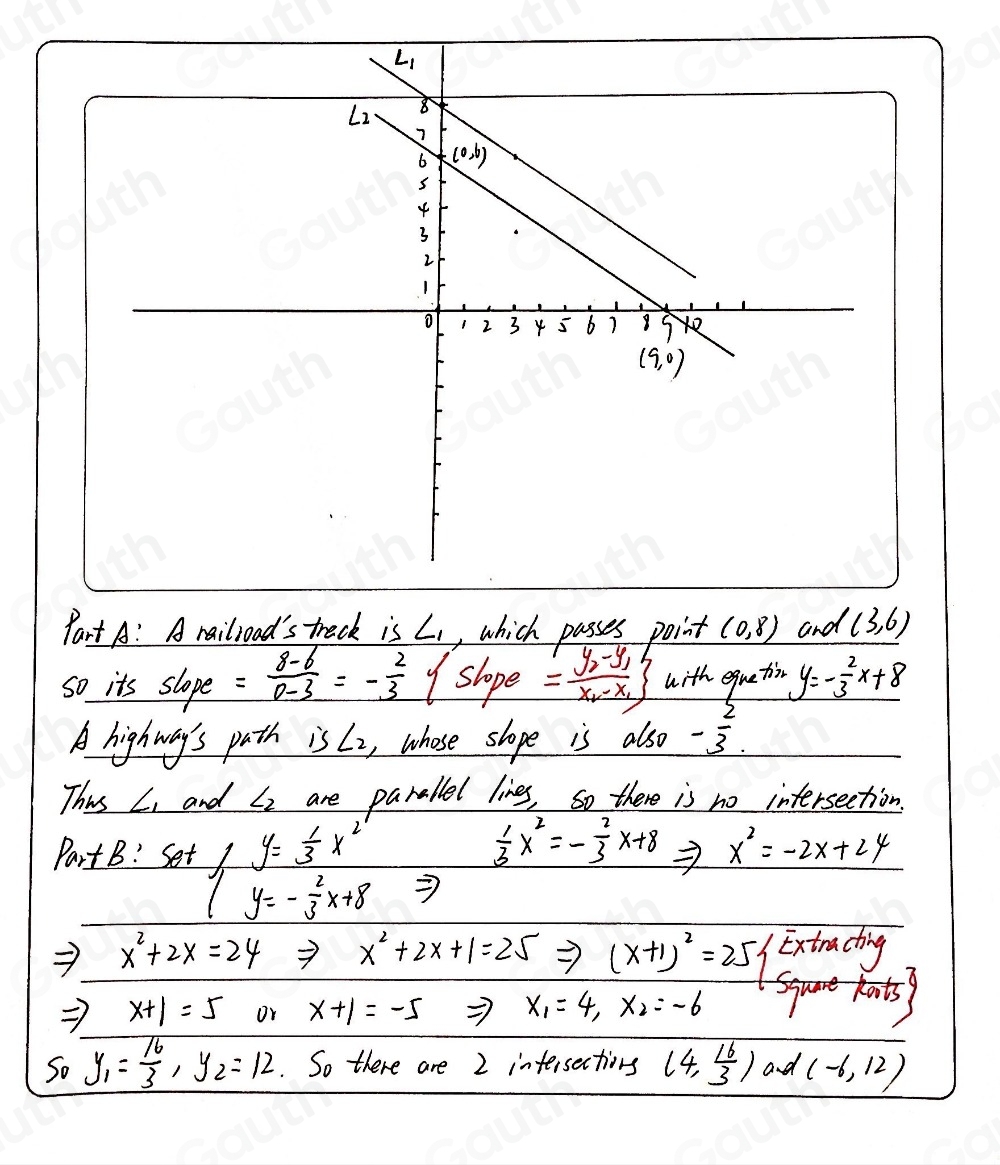 L₁
L₂
8
7
6 (0,6)
5
4
3
2
1
0 1 2 3 4 5 6 7 8 9 10
(9,0)
Part A: A railroad's track is L₁, which passes point (0,8) and (3,6)
so its slope = \frac{8-6}{0-3} = -\frac{2}{3} {slope = \frac{y₂-y₁}{x₂-x₁}} with equation y=-\frac{2}{3}x+8
A highway's path is L₂, whose slope is also -\frac{2}{3}.
Thus L₁ and L₂ are parallel lines, so there is no intersection.
Part B: Set { y=\frac{1}{3}x² \frac{1}{3}x²=-\frac{2}{3}x+8 ⇒ x²=-2x+24
y=-\frac{2}{3}x+8 ⇒
⇒ x²+2x=24 ⇒ x²+2x+1=25 ⇒ (x+1)²=25 {Extracting
Square Roots}
⇒ x+1=5 or x+1=-5 ⇒ x₁=4, x₂=-6
So y₁=\frac{16}{3}, y₂=12. So there are 2 intersections (4,\frac{16}{3}) and (-6,12)
Gauth